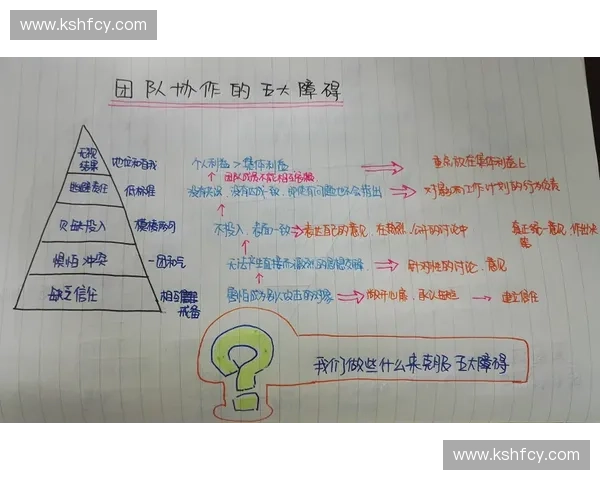 www.kshfcy.com
团队协作的五大障碍
无视
结果 地位和自我 个人利益 > 集体利益 重点放在集体利益上
逃避责任 低标准 没有达成一致，即使有问题也不会指出 对影响工作计划的行为负责
欠缺投入 模棱两可 不投入，表面一致 表达自己的意见，在激烈、公开的讨论中 真正统一意见，作出决策
惧怕冲突 一团和气 无法产生直接而激烈的思想交锋 针对性的讨论、意见
缺乏信任 相互 害怕成为别人攻击的对象 敞开心扉，承认 建立信任
戒备
?
我们做些什么来克服五大障碍
www.kshfcy.com